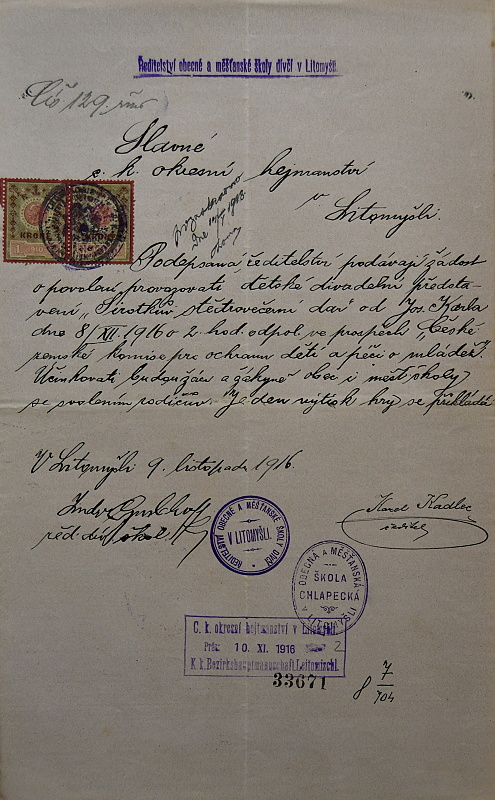 Ředitelství obecné a měšťanské školy dívčí v Litomyšli.
Čís 129.
Slavné
c. k. okresní hejmanství
v
Litomyšli.
dne
KRONE
KRONE
Podepsaná ředitelství podávají žádost
o povolení provozovati dětské divadelní predsta-
vení „Sirotkův štědrovečerní dar" od Jos. Karla
dne 8/XII. 1916 o 2. hod. odpol. ve prospěch „České
zemské komise pro ochranu dětí a péči o mládež".
Účinkovati budou žáci a žákyně obec. i měšť. školy
se svolením rodičův. Jeden výtisk hry se přikládá
V Litomyšli 9. listopadu 1916.
řed. dív. škol
ŘEDITELSTVÍ OBECNÉ A MĚŠŤANSKÉ ŠKOLY DÍVČÍ
V LITOMYŠLI.
Karel Kadlec
ředitel
OBECNÁ A MĚŠŤANSKÁ
ŠKOLA
CHLAPECKÁ
V LITOMYŠLI
C. k. okresní hejtmanství v Litomyšli.
Präs. 10. XI. 1916 2
K. k. Bezirkshauptmannschaft Leitomischl.
33671
8 7/104